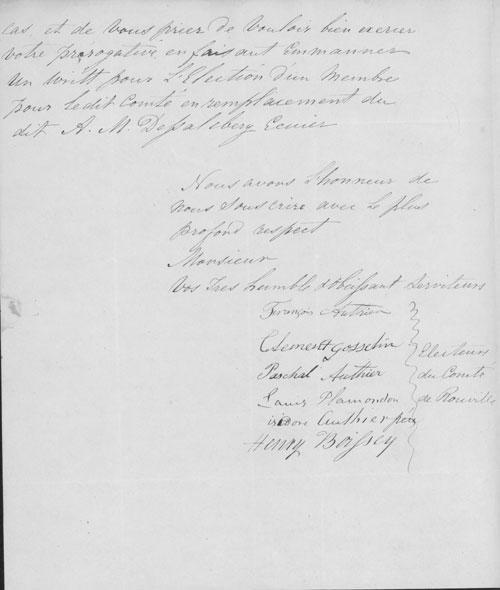 cas, et de vous prier de vouloir bien exercer
votre prérogative, en faisant Emmanner
Un Writt pour l'Election d'un Membre
pour ledit Comté en remplacement du
dit A. M. DeSalebery Ecuier
Nous avons l'honneur de
nous Souscrire avec le plus
profond respect
Monsieur
Vos Tres humble & Obeissant Serviteurs
François Authier
Clement Gosselin
Paschal Authier
Louis Plamondon
isidore Authier père
Henry Boissey
Electeurs
du Comté
de Rouville